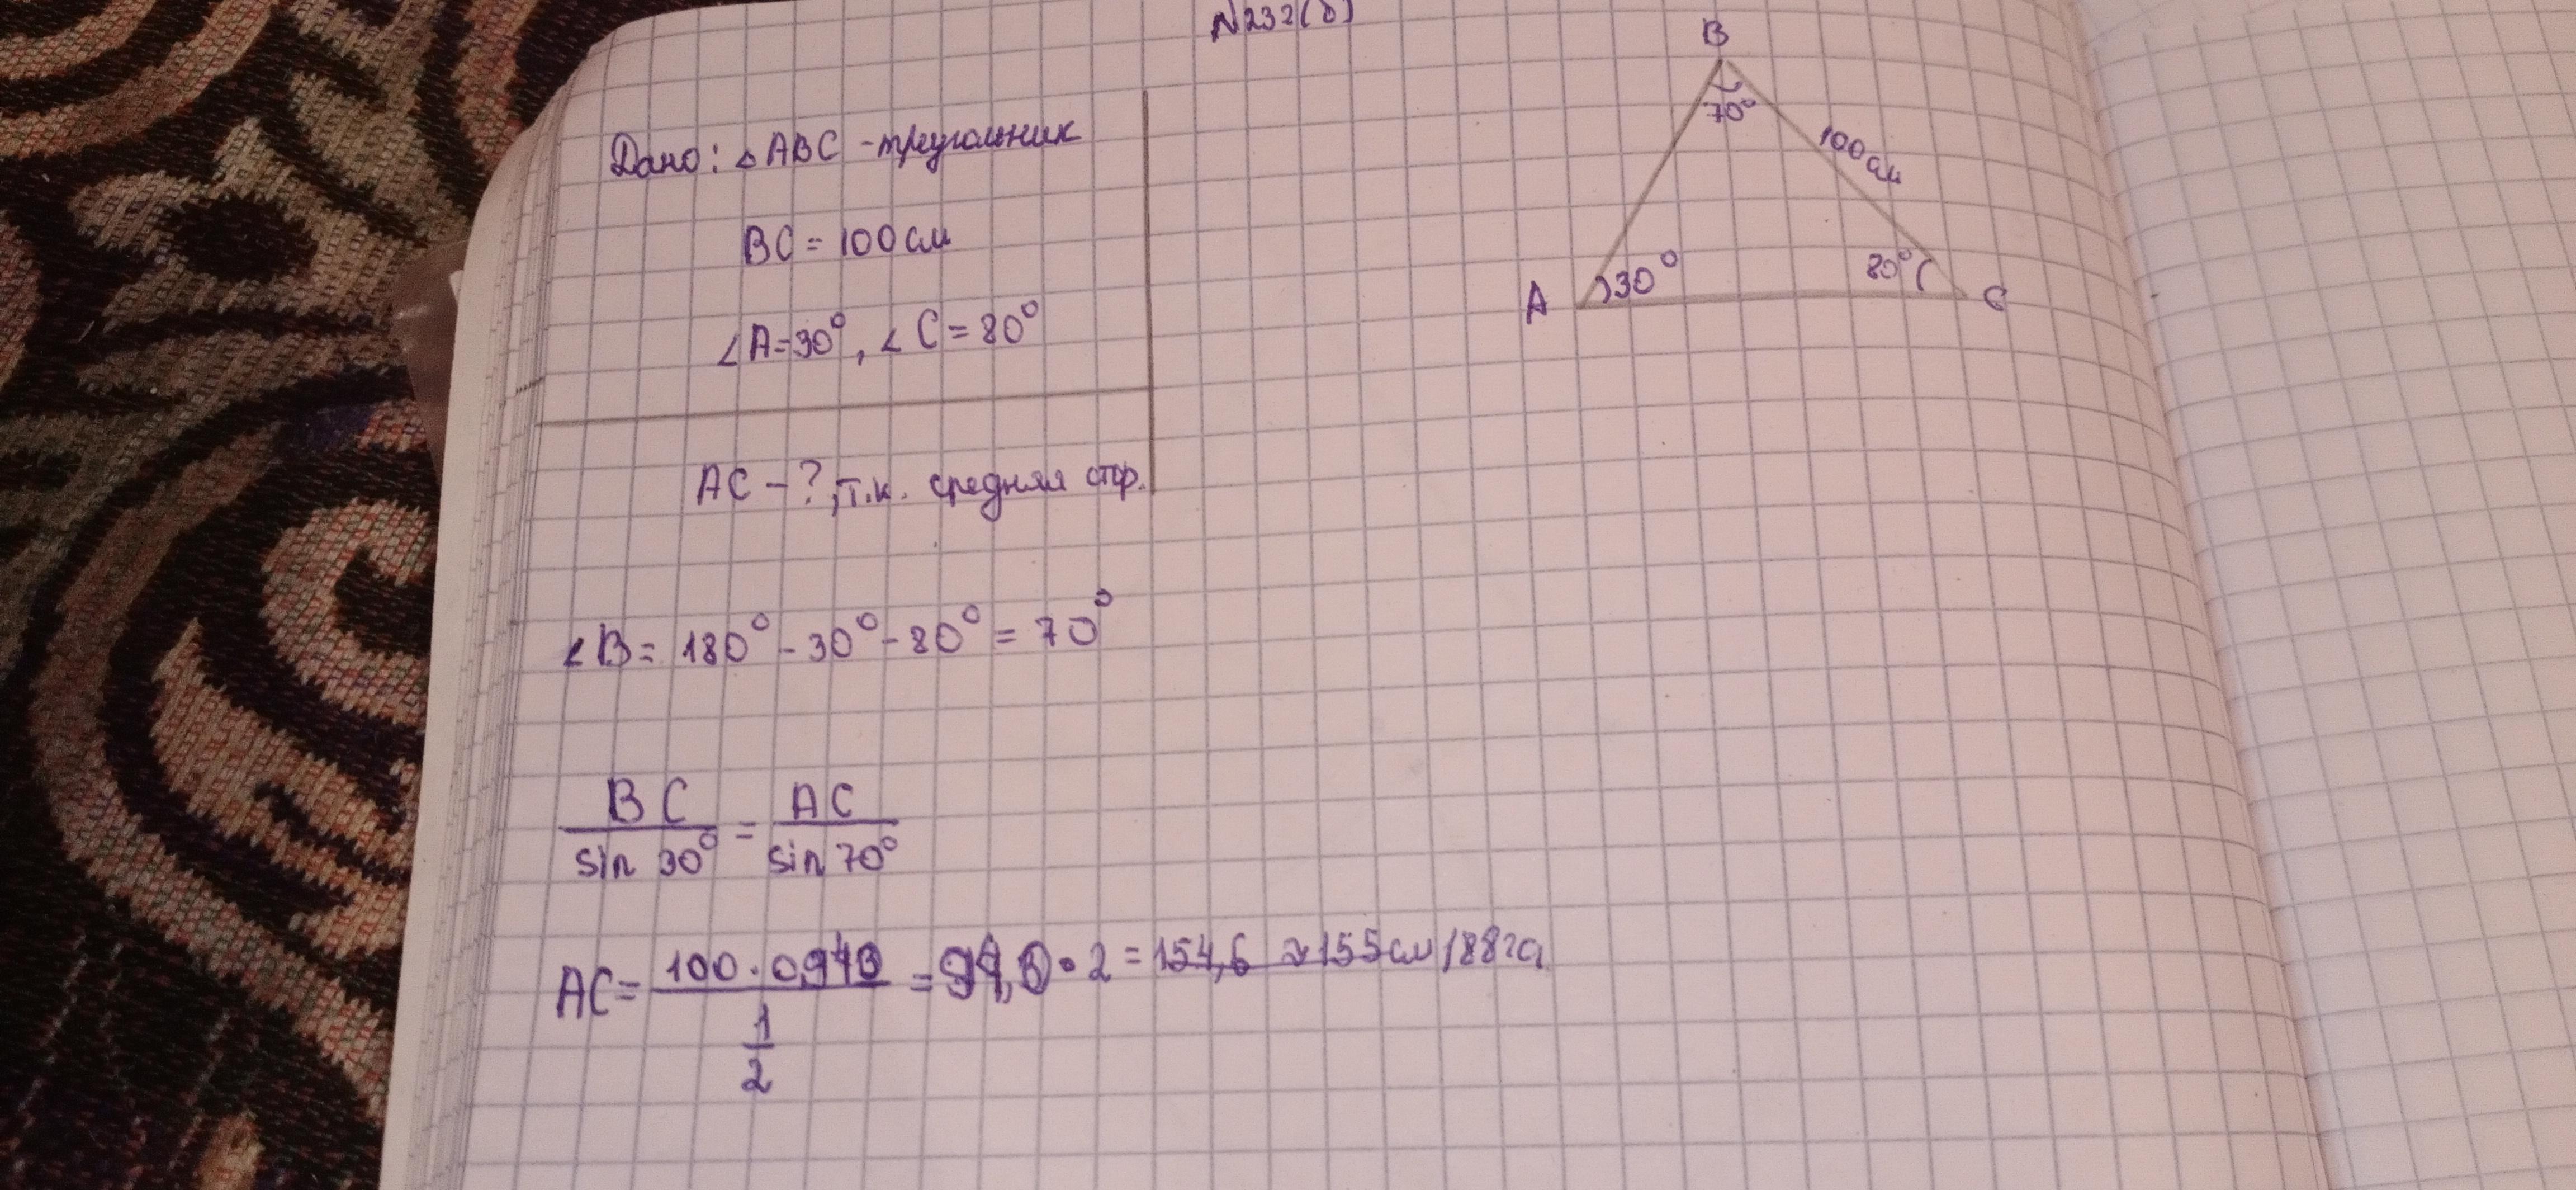 N232(б)
Дано: △ABC - треугольник
BC = 100 см
∠A = 30°, ∠C = 80°
AC - ?, т.к. средняя стр.
B
70°
100 см
A
30°
80°
C
∠B = 180° - 30° - 80° = 70°
BC/sin 30° = AC/sin 70°
AC = (100 · 0,940)/(1/2) = 94,0 · 2 = 154,6 ≈ 155 см 188